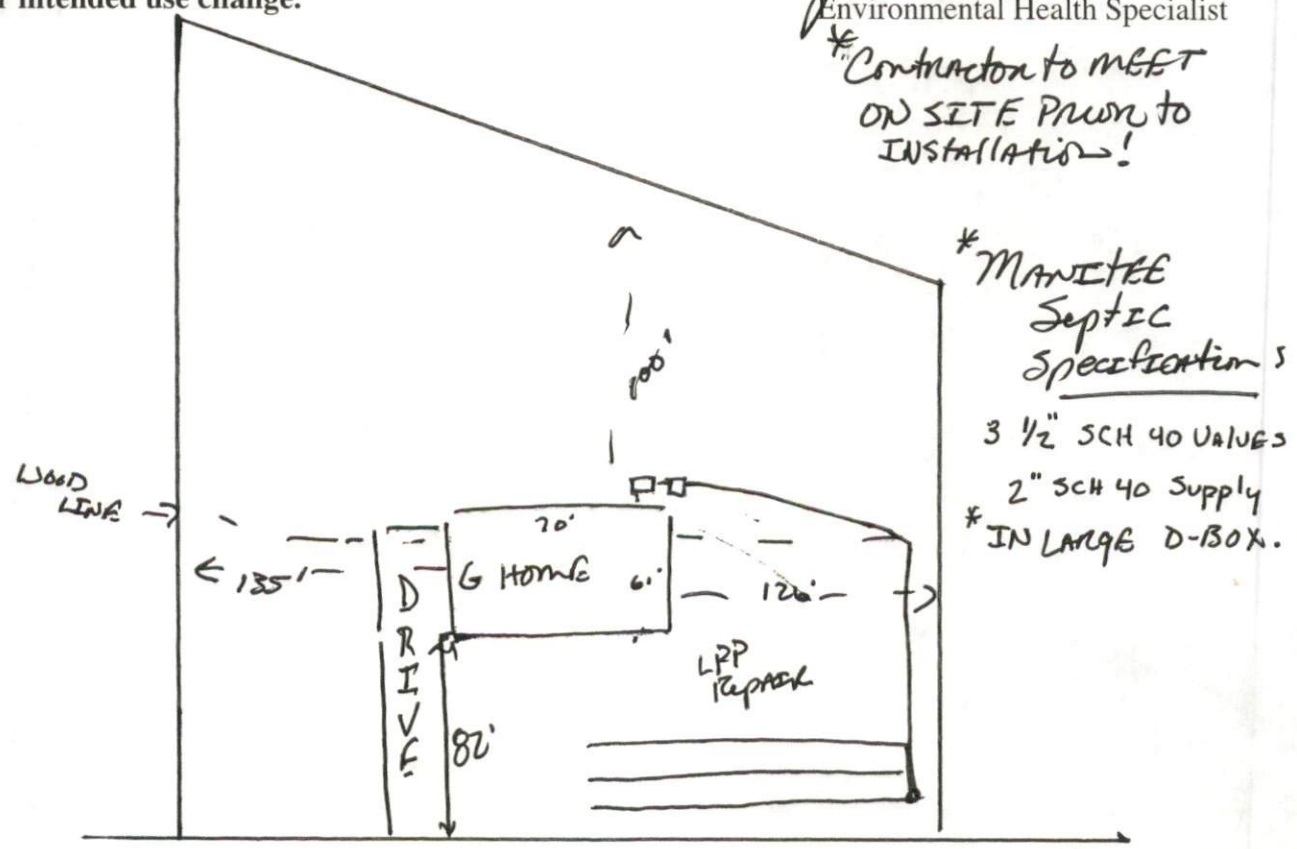 intended use change.
Environmental Health Specialist
*Contractor to MEET
ON SITE Prior to
INSTALLATION!
*MANITEE
SeptIC
Specifications
3 1/2" SCH 40 VALVES
2" SCH 40 Supply
*IN LARGE D-BOX.
100'
WOOD
LINE
70'
135'
G HOME
61'
126'
DRIVE
LPP
Repair
82'